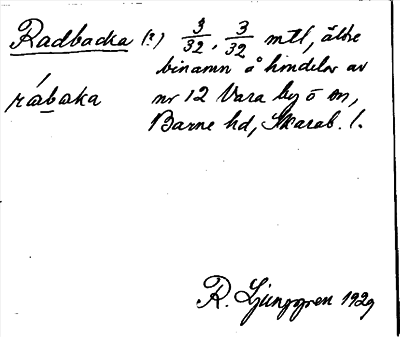 Radbacka (?) 3/32, 3/32 mtl, äldre
binamn å hindelar av
rábaka nr 12 Vara by o sn,
Barne hd, Skarab. l.
R. Ljunggren 1929